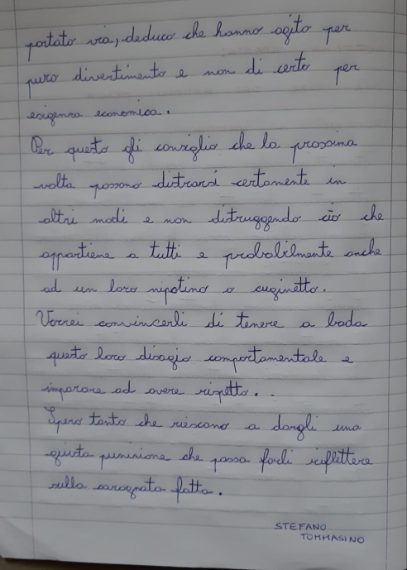 portato via, deduco che hanno agito per
puro divertimento e non di certo per
esigenza economica.
Per questo gli consiglio che la prossima
volta possono distrarsi certamente in
altri modi e non distruggendo ciò che
appartiene a tutti e probabilmente anche
ad un loro nipotino o cuginetto.
Vorrei convincerli di tenere a bada
questo loro disagio comportamentale e
imparare ad avere rispetto..
Spero tanto che riescano a dargli una
giusta punizione che possa farli riflettere
sulla carognata fatta.
STEFANO
TOMMASINO